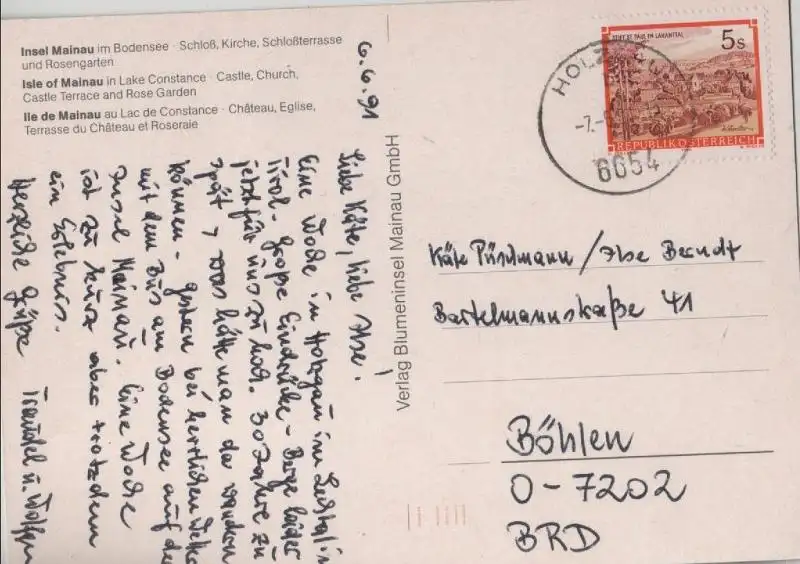 Insel Mainau im Bodensee · Schloß, Kirche, Schloßterrasse
und Rosengarten
Isle of Mainau in Lake Constance · Castle, Church,
Castle Terrace and Rose Garden
Ile de Mainau au Lac de Constance · Château, Eglise,
Terrasse du Château et Roseraie
6.6.91
Liebe Käte, liebe Ilse!
Eine Woche in Holzgau im Lechtal in
Tirol - große Eindrücke - Berge leider
jetzt für uns zu hoch. 30 Jahre zu
spät, was hätte man da wandern
können - gestern bei herrlichem Wetter
mit dem Bus am Bodensee auf der
Insel Mainau. Eine Woche
ist zu kurz aber trotzdem
ein Erlebnis.
Herzliche Grüße Traudel u.
Verlag Blumeninsel Mainau GmbH
STIFT ST. PAUL IM LAVANTTAL
5s
REPUBLIK ÖSTERREICH
HOLZGAU
-7.
6654
Käte / Ilse Berndt
Bartelmannstraße 41
Böhlen
O-7202
BRD